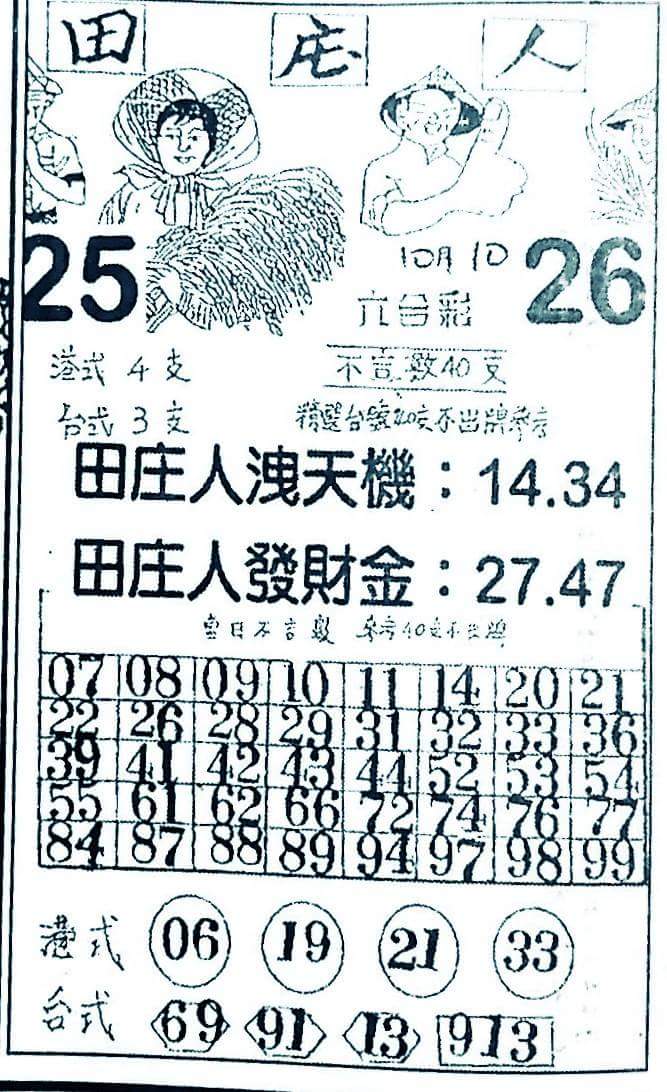 田 庄 人
25
10月10
26
六合彩
港式 4支
不言數40支
台式 3支
精選台號40支不出牌參考
田庄人洩天機：14.34
田庄人發財金：27.47
當日不言數 參考40支不出牌
07 08 09 10 11 14 20 21
22 26 28 29 31 32 33 36
39 41 42 43 44 52 53 54
55 61 62 66 72 74 76 77
84 87 88 89 94 97 98 99
港式 06 19 21 33
台式 69 91 13 913